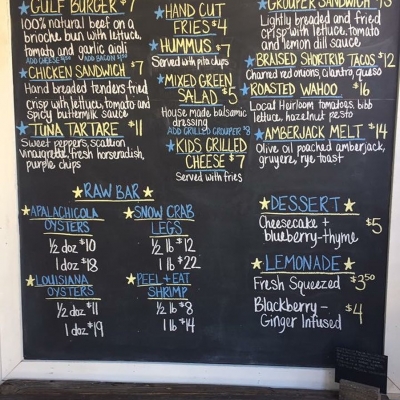 GULF BURGER $7
100% natural beef on a
brioche bun with lettuce,
tomato and garlic aioli
CHICKEN SANDWICH $7
Hand breaded tenders fried
crisp with lettuce, tomato and
spicy buttermilk sauce
TUNA TARTARE $11
Sweet peppers, scallion
vinaigrette, fresh horseradish,
purple chips
HAND CUT
FRIES $4
HUMMUS $7
Served with pita chips
MIXED GREEN
SALAD $5
House made balsamic
dressing
ADD GRILLED GROUPER $8
KIDS GRILLED
CHEESE $7
Served with fries
GROUPER SANDWICH
Lightly breaded and fried
crisp with lettuce, tomato
and lemon dill sauce
BRAISED SHORTRIB TACOS $12
Charred red onions, cilantro, queso
ROASTED WAHOO $16
Local Heirloom tomatoes, bibb
lettuce, hazelnut pesto
AMBERJACK MELT $14
Olive oil poached amberjack,
gruyere, rye toast
RAW BAR
APALACHICOLA
OYSTERS
1/2 doz $10
1 doz $18
LOUISIANA
OYSTERS
1/2 doz $11
1 doz $19
SNOW CRAB
LEGS
1/2 lb $12
1 lb $22
PEEL + EAT
SHRIMP
1/2 lb $8
1 lb $14
DESSERT
Cheesecake +
blueberry-thyme $5
LEMONADE
Fresh Squeezed $3.50
Blackberry-
Ginger Infused $4